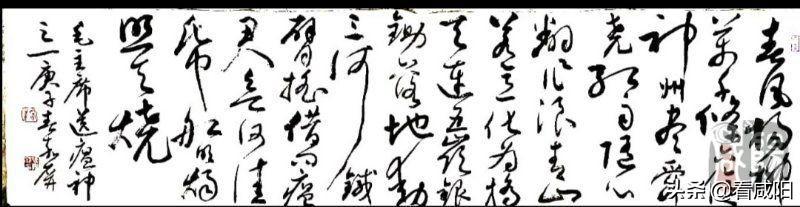 春风楊柳
萬千條六亿
神州尽舜
尧红雨随心
翻作浪青山
着意化为橋
天連五嶺銀
鋤落地動
三河鐵
臂摇借问瘟
君欲何往
纸船明燭
照天燒
毛主席送瘟神
之一庚子春
头条@看咸阳